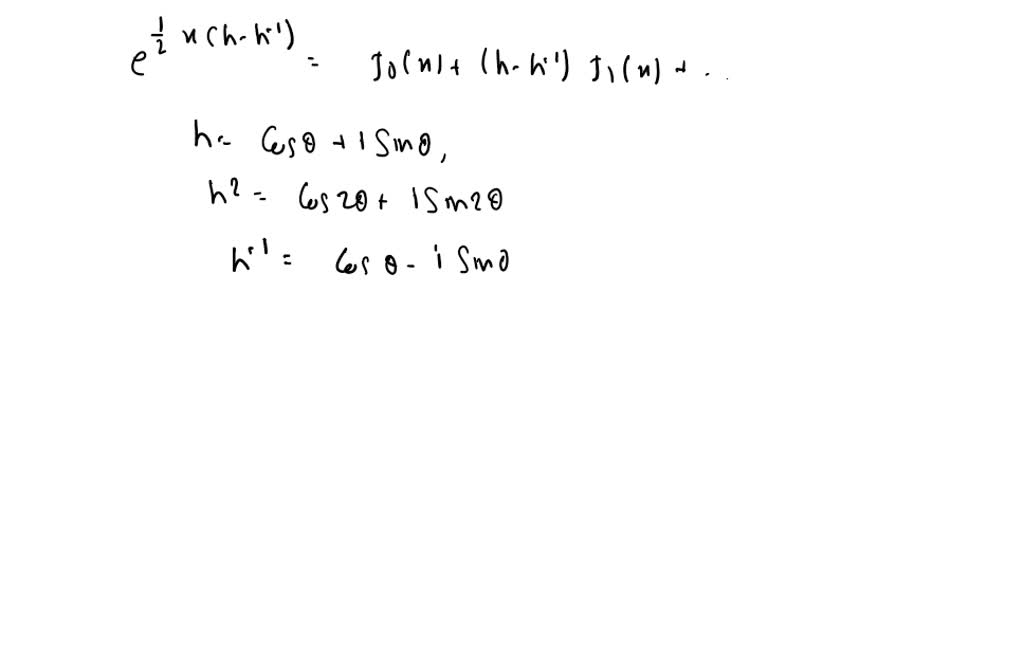 e^{\frac{1}{2} x (h - h^{-1})} = J_0(x) + (h - h^{-1}) J_1(x) + ...
h = Cos θ + i Sin θ,
h^2 = Cos 2θ + i Sin 2θ
h^{-1} = Cos θ - i Sin θ